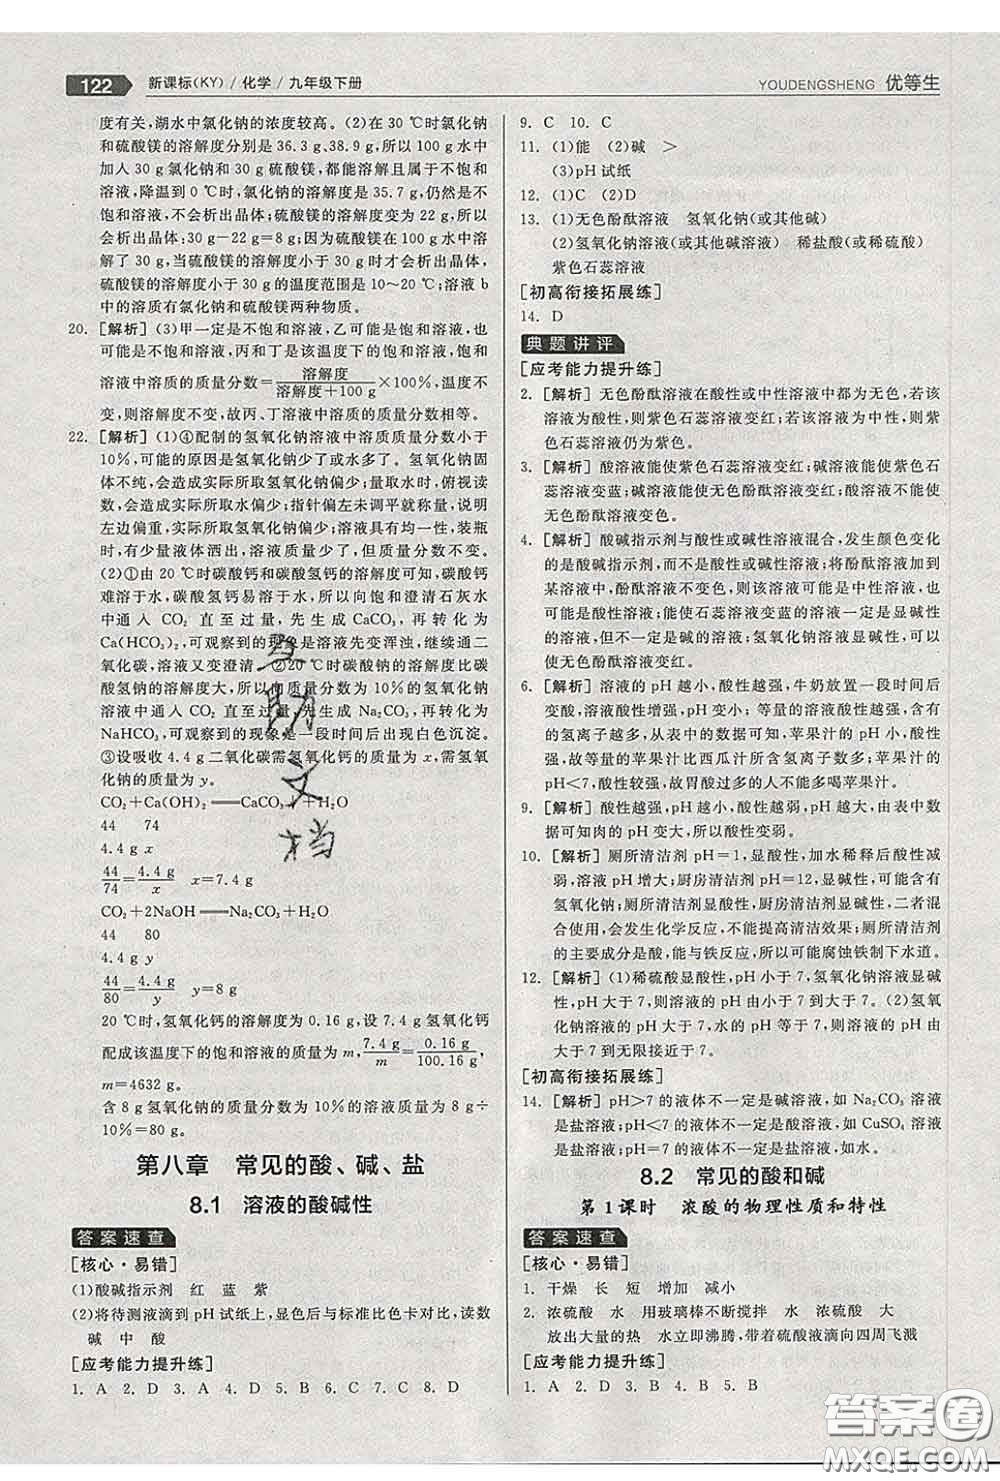 122 新课标(KY)/化学/九年级下册
YOUDENGSHENG 优等生
度有关,湖水中氯化钠的浓度较高。(2)在 30 ℃时氯化钠
和硫酸镁的溶解度分别是 36.3 g、38.9 g,所以 100 g 水中
加入 30 g 氯化钠和 30 g 硫酸镁,都能溶解且都是不饱和
溶液,降温到 0 ℃时,氯化钠的溶解度是 35.7 g,仍然是不
饱和溶液,不会析出晶体;硫酸镁的溶解度变为 22 g,所以
会析出晶体;30 g-22 g=8 g;因为硫酸镁在 100 g 水中溶
解了 30 g,当硫酸镁溶解度小于 30 g 时才会析出晶体,
硫酸镁的溶解度小于 30 g 的温度范围是 10～20 ℃;溶液 b
中的溶质有氯化钠和硫酸镁两种物质。
20. [解析] (3)甲一定是不饱和溶液,乙可能是饱和溶液,也
可能是不饱和溶液,丙和丁是该温度下的饱和溶液,饱和
溶液中溶质的质量分数=溶解度/(溶解度+100 g)×100%,温度不
变,则溶解度不变,故丙、丁溶液中溶质的质量分数相等。
22. [解析] (1)④配制的氢氧化钠溶液中溶质质量分数小于
10%,可能的原因是氢氧化钠少了或水多了。氢氧化钠固
体不纯,会造成实际所取氢氧化钠偏少;量取水时,俯视读
数,会造成实际所取水偏少;指针偏左未调平就称量,说明
左边偏重,实际所取氢氧化钠偏少;溶液具有均一性,装瓶
时,有少量液体洒出,溶液质量少了,但质量分数不变。
(2)①由 20 ℃时碳酸钙和碳酸氢钙的溶解度可知,碳酸钙
难溶于水,碳酸氢钙易溶于水,所以向饱和澄清石灰水
中通入 CO₂ 直至过量,先生成 CaCO₃,再转化为
Ca(HCO₃)₂,可观察到的现象是溶液先变浑浊,继续通二
氧化碳,溶液又变澄清。②20 ℃时碳酸钠的溶解度比碳
酸氢钠的溶解度大,所以向质量分数为 10%的氢氧化钠
溶液中通入 CO₂ 直至过量,先生成 Na₂CO₃,再转化为
NaHCO₃,可观察到的现象是一段时间后出现白色沉淀。
③设吸收 4.4 g 二氧化碳需氢氧化钙的质量为 x,需氢氧
化钠的质量为 y。
CO₂+Ca(OH)₂══CaCO₃↓+H₂O
44 74
4.4 g x
44/74=4.4 g/x x=7.4 g
CO₂+2NaOH══Na₂CO₃+H₂O
44 80
4.4 g y
44/80=4.4 g/y y=8 g
20 ℃时,氢氧化钙的溶解度为 0.16 g,设 7.4 g 氢氧化钙
配成该温度下的饱和溶液的质量为 m,7.4 g/m=0.16 g/100.16 g,
m=4632 g。
含 8 g 氢氧化钠的质量分数为 10%的溶液质量为 8 g÷
10%=80 g。
第八章 常见的酸、碱、盐
8.1 溶液的酸碱性
答案速查
[核心·易错]
(1)酸碱指示剂 红 蓝 紫
(2)将待测液滴到 pH 试纸上,显色后与标准比色卡对比,读数
碱 中 酸
[应考能力提升练]
1. A 2. D 3. A 4. D 5. B 6. C 7. C 8. D
9. C 10. C
11. (1)能 (2)碱 >
(3)pH 试纸
12. (1)C (2)D
13. (1)无色酚酞溶液 氢氧化钠(或其他碱)
(2)氢氧化钠溶液(或其他碱溶液) 稀盐酸(或稀硫酸)
紫色石蕊溶液
[初高衔接拓展练]
14. D
典题讲评
[应考能力提升练]
2. [解析] 无色酚酞溶液在酸性或中性溶液中都为无色,若该
溶液为酸性,则紫色石蕊溶液变红;若该溶液为中性,则紫
色石蕊溶液仍为紫色。
3. [解析] 酸溶液能使紫色石蕊溶液变红;碱溶液能使紫色石
蕊溶液变蓝;碱溶液能使无色酚酞溶液变红;酸溶液不能使
无色酚酞溶液变色。
4. [解析] 酸碱指示剂与酸性或碱性溶液混合,发生颜色变化
的是酸碱指示剂,而不是酸性或碱性溶液;将酚酞溶液加到
某溶液中,酚酞溶液不变色,则该溶液可能是中性溶液,也
可能是酸性溶液;能使石蕊溶液变蓝的溶液一定是显碱性
的溶液,但不一定是碱的溶液;氢氧化钠溶液显碱性,可使
石蕊溶液变蓝,但不能变红。
6. [解析] 溶液的 pH 越小,酸性越强,牛奶放置一段时间后
变酸,溶液酸性增强,pH 变小;等量的溶液酸性越强,含有
的氢离子越多,从表中的数据可知,苹果汁的 pH 小,酸性
强,含的氢离子多,等量的苹果汁比西瓜汁所含氢离子多;
pH<7,酸性较强,故胃酸过多的人不能多喝苹果汁。
9. [解析] 酸性越强,pH 越小,酸性越弱,pH 越大,由表中数
据可知肉的 pH 变大,所以酸性变弱。
10. [解析] 厕所清洁剂 pH=1,显酸性,加水稀释后酸性减
弱,溶液 pH 增大;厨房清洁剂 pH=12,显碱性,可能含有
氢氧化钠;厕所清洁剂显酸性,厨房清洁剂显碱性,二者混
合使用,会发生化学反应,不能提高清洁效果;厕所清洁剂
的主要成分是酸,能与铁反应,所以可能腐蚀铁制下水道。
12. [解析] (1)稀硫酸显酸性,pH 小于 7,氢氧化钠溶液显碱
性,pH 大于 7,所以 pH 的变化是由小于 7 到大于 7。(2)氢氧
化钠溶液的 pH 大于 7,水的 pH 等于 7,所以 pH 的变化是由
大于 7 到无限接近于 7。
[初高衔接拓展练]
14. [解析] pH>7 的液体不一定是碱溶液,如 Na₂CO₃ 溶液
是盐溶液;pH<7 的液体不一定是酸溶液,如 CuSO₄ 溶液
是盐溶液;pH=7 的液体不一定是盐溶液,如水。
8.2 常见的酸和碱
第 1 课时 浓酸的物理性质和特性
答案速查
[核心·易错]
1. 干燥 长 短 增加 减小
2. 浓硫酸 水 用玻璃棒不断搅拌 水 浓硫酸 大
放出大量的热 水立即沸腾,带着硫酸液滴向四周飞溅
[应考能力提升练]
1. B 2. A 3. A 4. B 5. B
互助文档
答案圈
MXQE.COM